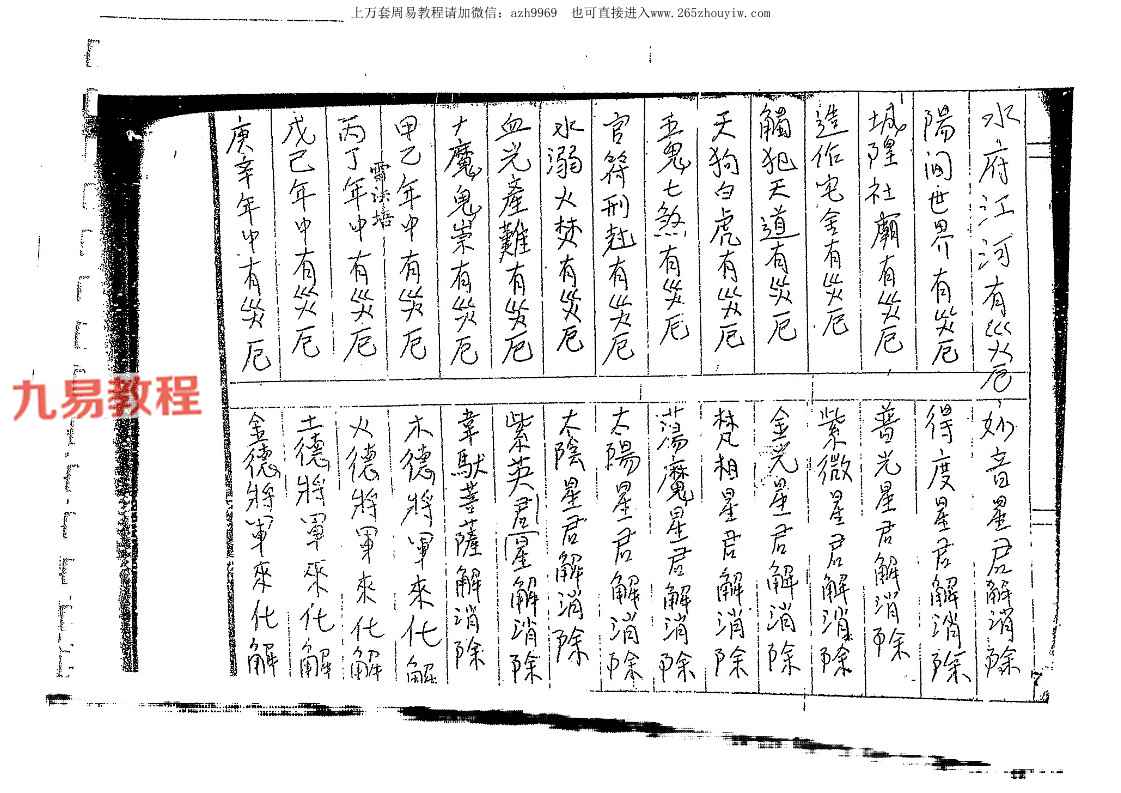 上万套周易教程请加微信：azh9969　也可直接进入www.265zhouyiw.com
水府江河有災厄，妙音星君解消除
陽间世界有災厄 得度星君解消除
城隍社廟有災厄 普光星君解消除
造作宅舍有災厄 紫微星君解消除
觸犯天道有災厄 金光星君解消除
天狗白虎有災厄 梵相星君解消除
五鬼七煞有災厄 蕩魔星君解消除
官符刑赳有災厄 太陽星君解消除
水溺火焚有災厄 太陰星君解消除
血光產難有災厄 紫英君星解消除
魔鬼祟有災厄 韋馱菩薩解消除
甲乙年中有災厄 木德將軍來化解
丙丁年中有災厄 火德將軍來化解
戊己年中有災厄 土德將軍來化解
庚辛年中有災厄 金德將軍來化解
九易教程